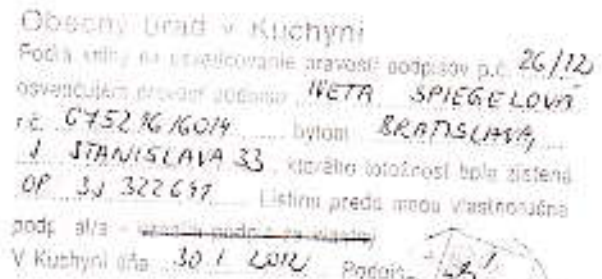 Obecný úrad v Kuchyni
Podľa knihy na osvedčovanie pravosti podpisov p.č. 26/12
osvedčujem pravosť podpisu IVETA SPIEGELOVÁ
r.č. 675216/6014 bytom BRATISLAVA,
J STANISLAVA 33, ktorého totožnosť bola zistená
OP SJ 322697 Listinu predo mnou vlastnoručne
podp al/a - uznal podpis za vlastný
V Kuchyni dňa 30.1.2012 Podpis